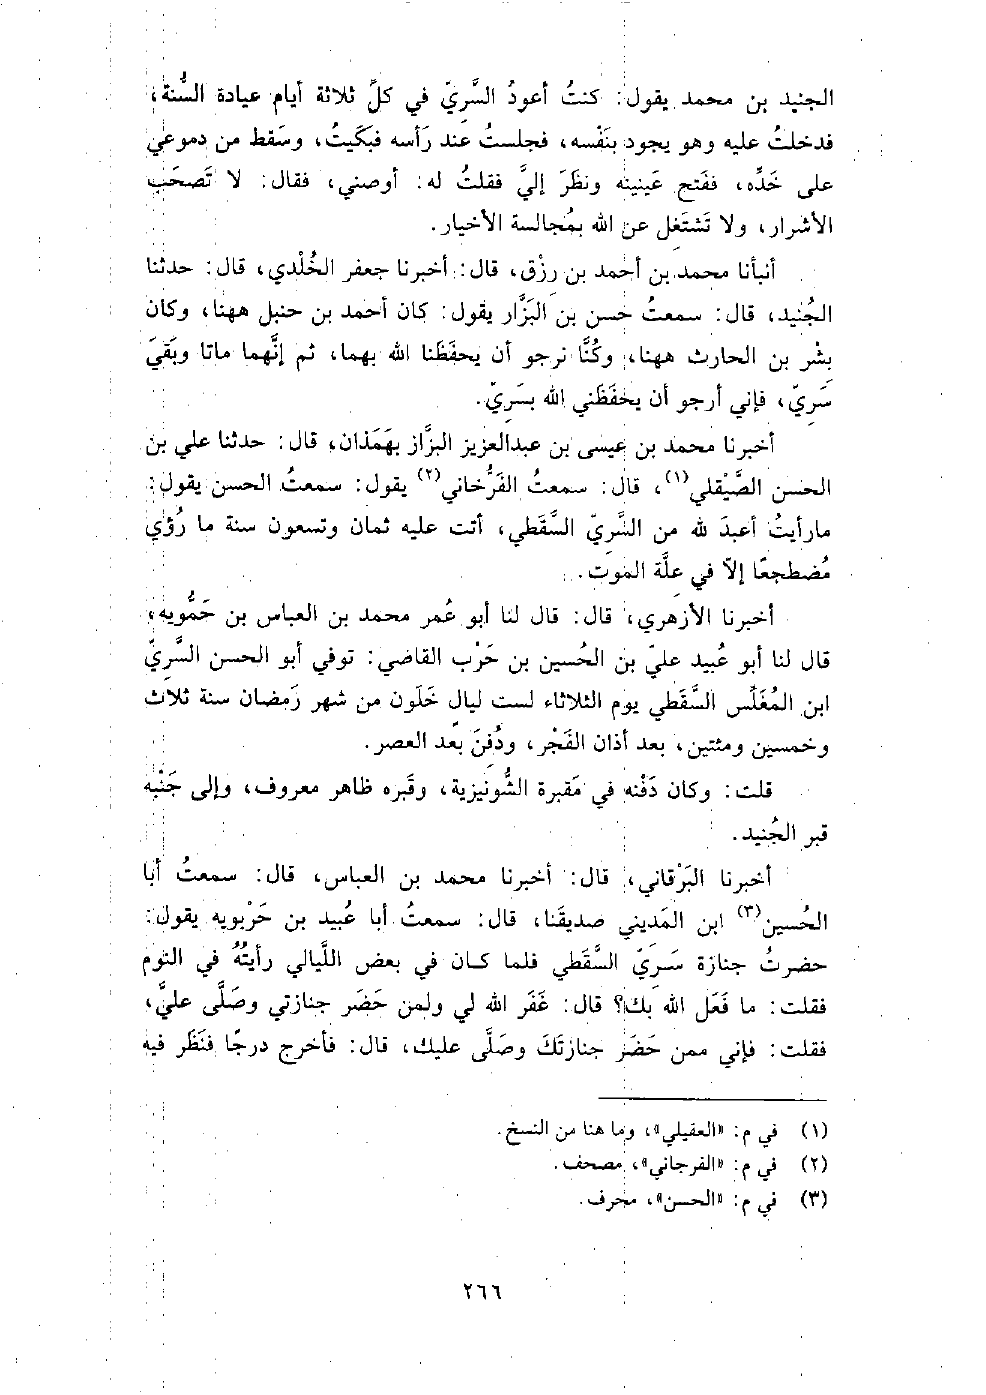 الجنيد بن محمد يقول: كنتُ أعودُ السَّريّ في كلِّ ثلاثة أيام عيادة السُّنة،
فدخلتُ عليه وهو يجود بنَفْسه، فجلستُ عند رَأسه فبَكَيتُ، وسَقط من دموعي
على خَدِّه، ففَتح عَينيه ونظَرَ إليَّ فقلتُ له: أوصني، فقال: لا تَصحَب
الأشرار، ولا تَشتَغل عن الله بمُجالسة الأخيار.
أنبأنا محمد بن أحمد بن رِزْق، قال: أخبرنا جعفر الخُلْدي، قال: حدثنا
الجُنيد، قال: سمعتُ حَسن بن البَزَّار يقول: كان أحمد بن حنبل ههنا، وكان
بِشْر بن الحارث ههنا، وكُنَّا نرجو أن يحفَظَنا الله بهما، ثم إنَّهما ماتا وبَقيَ
سَريّ، فإني أرجو أن يحَفَظَني الله بسَريّ.
أخبرنا محمد بن عيسى بن عبدالعزيز البزَّاز بهَمَذان، قال: حدثنا علي بن
الحسن الصَّيْقلي(١)، قال: سمعتُ الفَرُّخاني(٢) يقول: سمعتُ الحسن يقول:
مارأيتُ أعبدَ لله من السَّريّ السَّقَطي، أتت عليه ثمان وتسعون سنة ما رُؤي
مُضطجعًا إلاّ في علَّة الموت.
أخبرنا الأزهري، قال: قال لنا أبو عُمر محمد بن العباس بن حَمُّويه،
قال لنا أبو عُبيد عليّ بن الحُسين بن حَرْب القاضي: توفي أبو الحسن السَّريّ
ابن المُغَلِّس السَّقَطي يوم الثلاثاء لست ليال خَلَون من شهر رَمضان سنة ثلاث
وخمسين ومئتين، بعد أذان الفَجْر، ودُفنَ بعد العصر.
قلت: وكان دَفْنه في مَقبرة الشُّونيزية، وقَبره ظاهر معروف، وإلى جَنْبه
قبر الجُنيد.
أخبرنا البَرْقاني، قال: أخبرنا محمد بن العباس، قال: سمعتُ أبا
الحُسين(٣) ابن المَديني صديقَنا، قال: سمعتُ أبا عُبيد بن حَرْبويه يقول:
حضرتُ جنازة سَريّ السَّقَطي فلما كان في بعض اللَّيالي رأيتُهُ في النوم
فقلت: ما فَعَل الله بك؟ قال: غَفَر الله لي ولمن حَضَر جنازتي وصَلَّى عليَّ،
فقلت: فإني ممن حَضَر جنازتَكَ وصَلَّى عليك، قال: فأخرج درجًا فنَظَر فيه
(١) في م: «العقيلي»، وما هنا من النسخ.
(٢) في م: «الفرجاني»، مصحف.
(٣) في م: «الحسن»، محرف.
٢٦٦